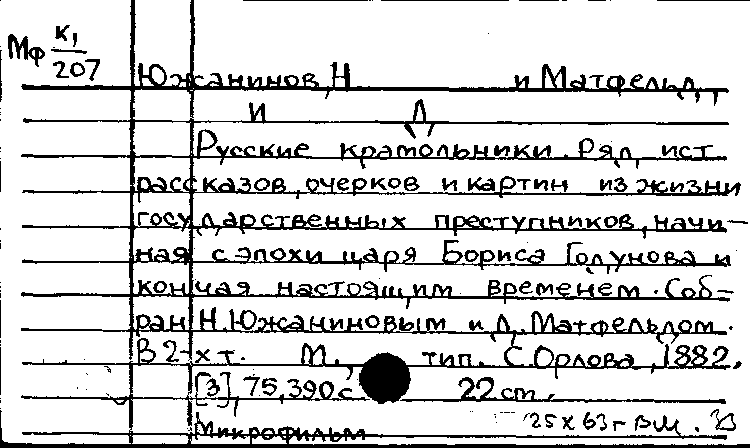 Мф К1/207
Южанинов, Н и Матфельд,
И Д,
Русские крамольники. Ряд ист
рассказов, очерков и картин из жизни
государственных преступников, начи-
ная с эпохи царя Бориса Годунова и
кончая настоящим временем. Соб-
ран Н. Южаниновым и Д. Матфельдом.
В 2-х т. М., тип. С. Орлова, 1882.
[3], 75, 390 с 22 cm.
25х63г ВМ.
Микрофильм